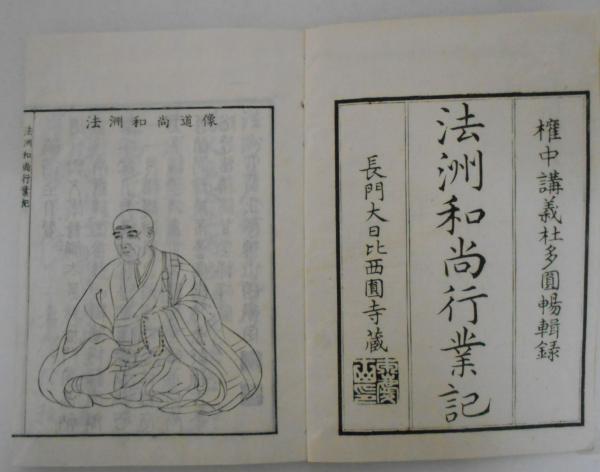 權中講義杜多圓暢輯録
法洲和尚行業記
長門大日比西圓寺藏
法洲和尚道像
法洲和尚行業記